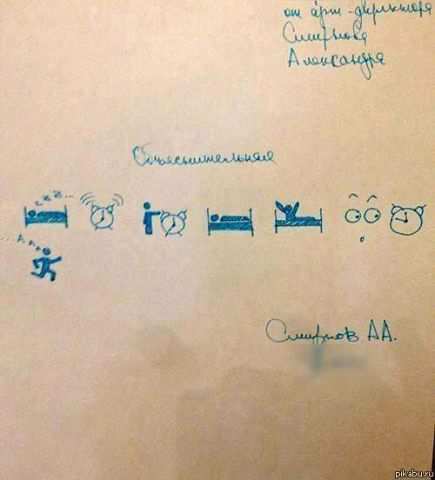 от арт-директора
Смирнова
Александра
Объяснительная
z z z...
Смирнов А.А.
pikabu.ru